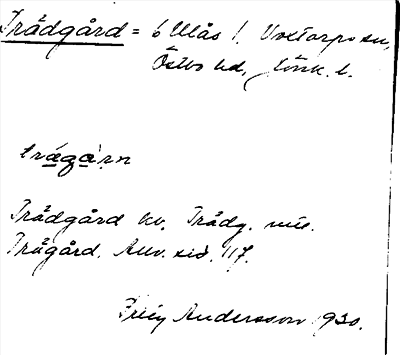 Trädgård = 6 Ulås 1. Voxtorps sn,
Östbo hd, Jönk. l.
trágàrn
Trädgård kv. Trädg.
Trägård. sid. 117.
Andersson 1930.